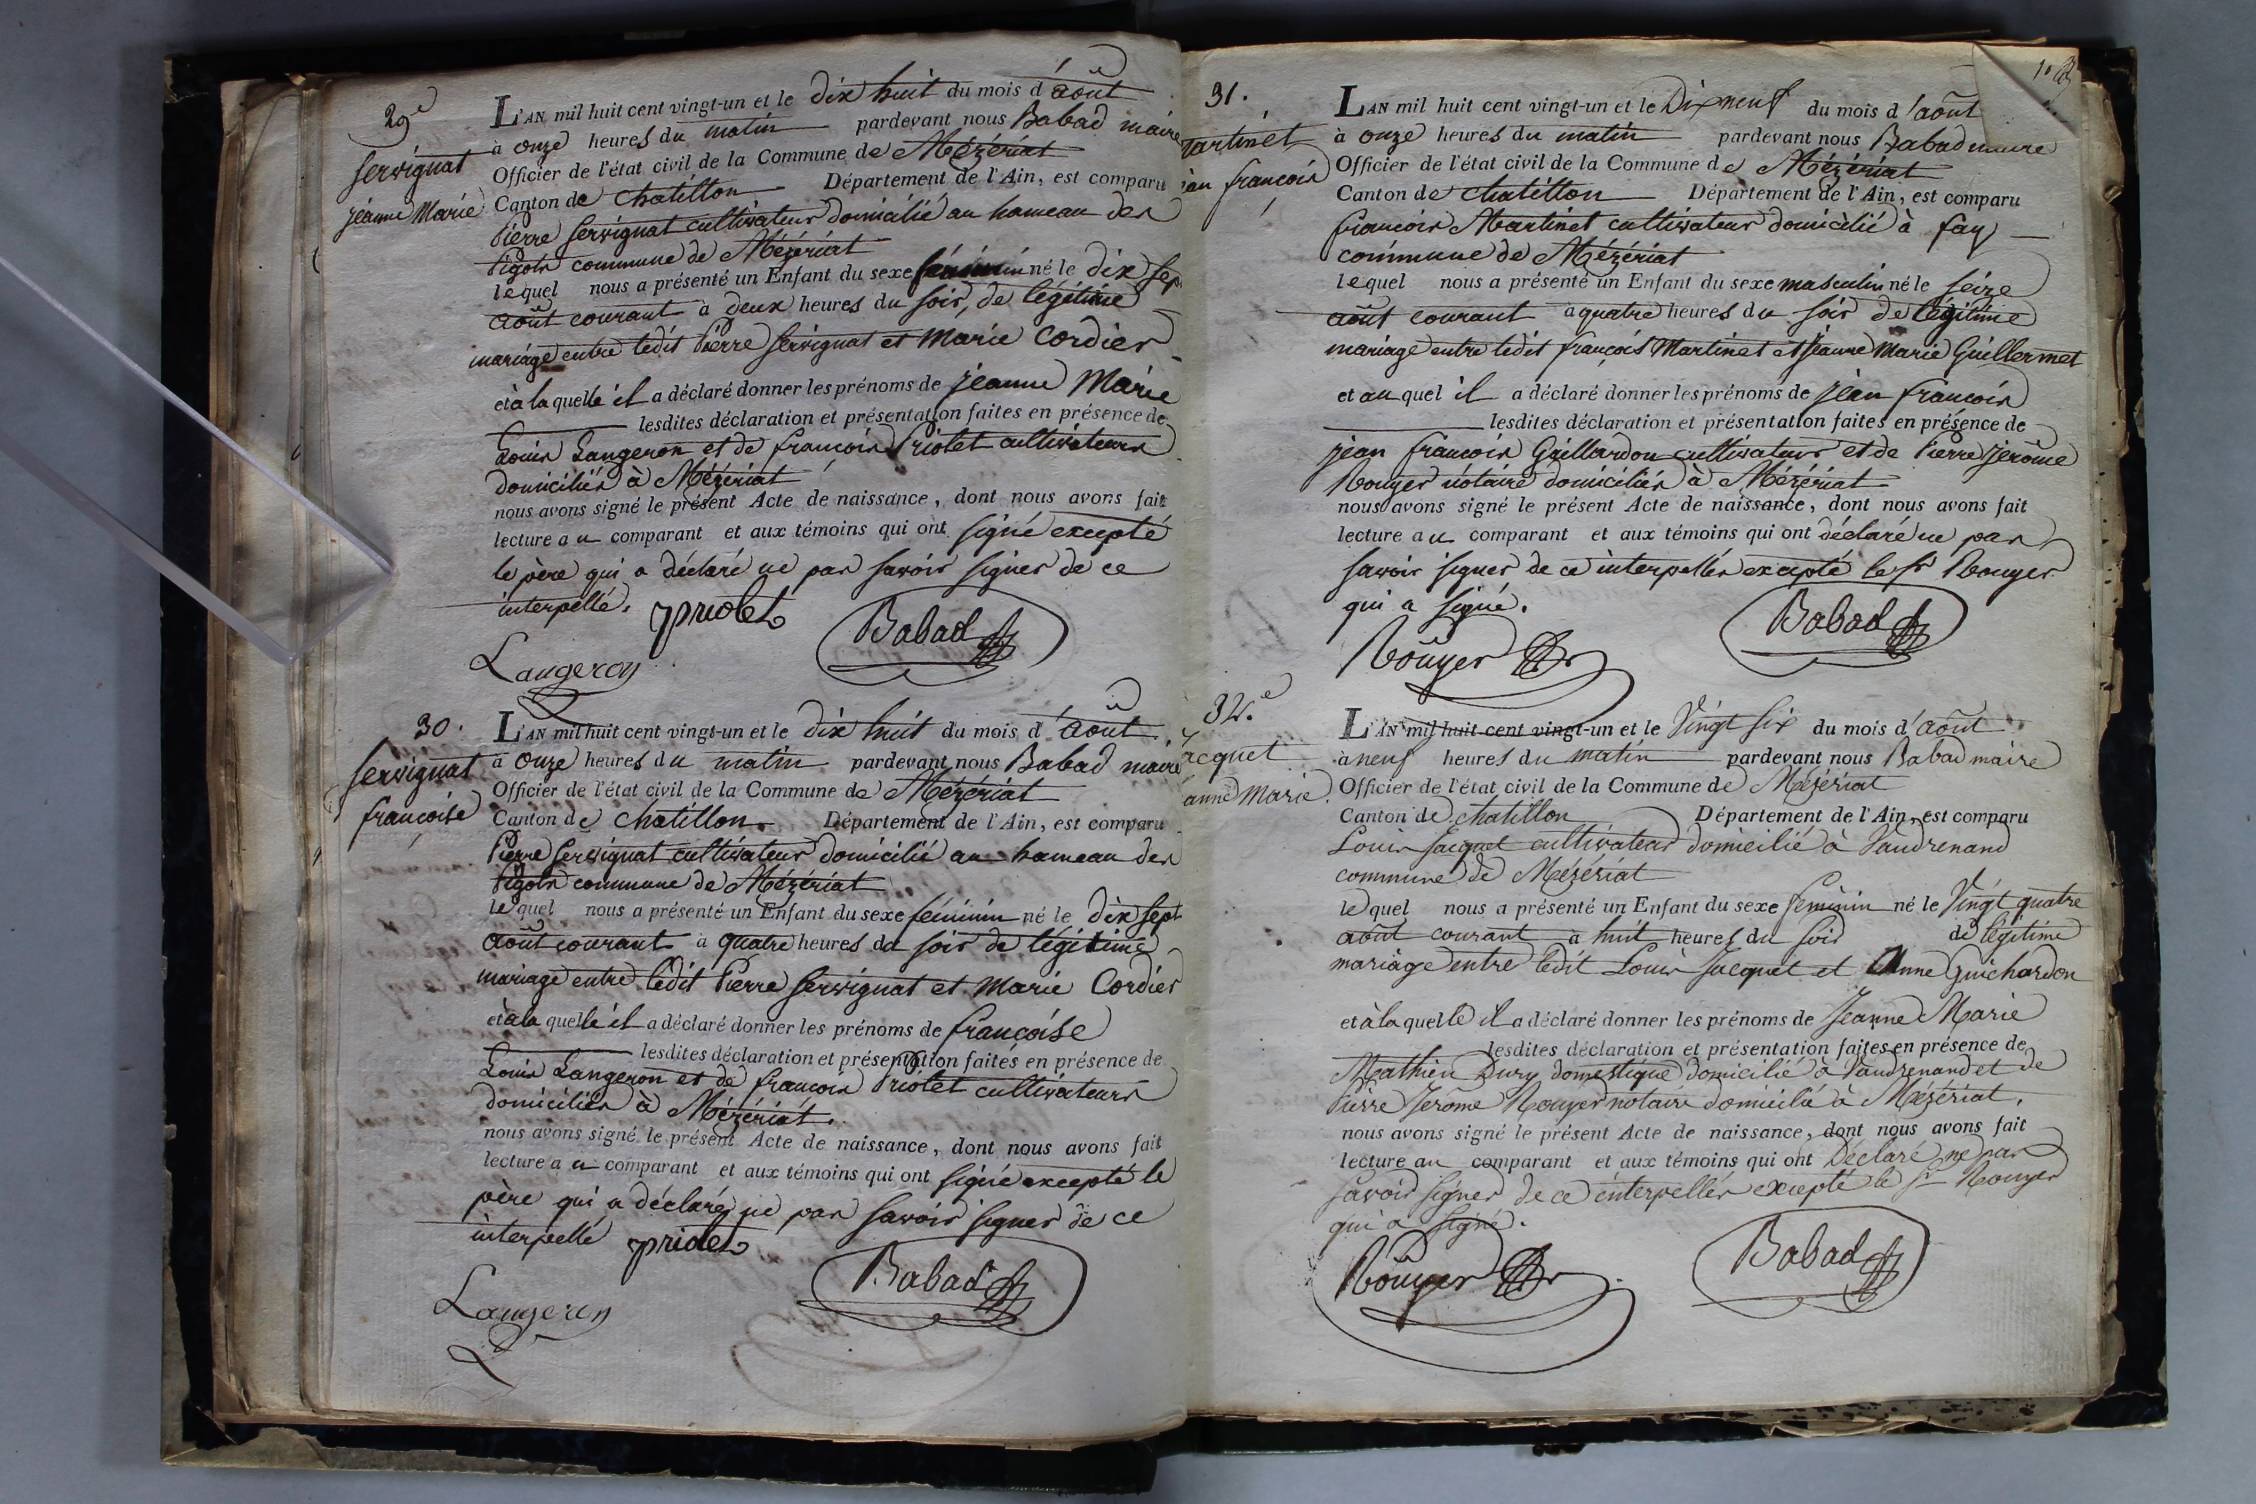 29e
servignat
jeanne Marie
L'AN mil huit cent vingt-un et le dix huit du mois d'août
à onze heures du matin pardevant nous Babad maire
Officier de l'état civil de la Commune de Mézériat
Canton de chatillon Département de l'Ain, est comparu
Pierre servignat cultivateur domicilié au hameau des
Pigots commune de Mézériat
lequel nous a présenté un Enfant du sexe féminin né le dix sept
août courant à deux heures du soir, de légitime
mariage entre ledit Pierre servignat et Marie Cordier
et à la quelle il a déclaré donner les prénoms de jeanne Marie
lesdites déclaration et présentation faites en présence de
Louis Langeron et de françois Priolet cultivateurs
domiciliés à Mézériat
nous avons signé le présent Acte de naissance, dont nous avons fait
lecture au comparant et aux témoins qui ont signé excepté
le père qui a déclaré ne pas savoir signer de ce
interpellé. priolet
Babad
Langeron
30.
servignat
françoise
L'AN mil huit cent vingt-un et le dix huit du mois d'août
à onze heures du matin pardevant nous Babad maire
Officier de l'état civil de la Commune de Mézériat
Canton de chatillon Département de l'Ain, est comparu
Pierre servignat cultivateur domicilié au hameau des
Pigots commune de Mézériat
lequel nous a présenté un Enfant du sexe féminin né le dix sept
août courant à quatre heures du soir de légitime
mariage entre ledit Pierre servignat et Marie Cordier
et à la quelle il a déclaré donner les prénoms de françoise
lesdites déclaration et présentation faites en présence de
Louis Langeron et de françois Priolet cultivateurs
domiciliés à Mézériat.
nous avons signé le présent Acte de naissance, dont nous avons fait
lecture au comparant et aux témoins qui ont signé excepté le
père qui a déclaré ne pas savoir signer de ce
interpellé priolet
Babad
Langeron
31.
artinet
an françois
L'AN mil huit cent vingt-un et le Dix neuf du mois d'août
à onze heures du matin pardevant nous Babad maire
Officier de l'état civil de la Commune de Mézériat
Canton de chatillon Département de l'Ain, est comparu
françois Martinet cultivateur domicilié à fay
commune de Mézériat
lequel nous a présenté un Enfant du sexe masculin né le seize
août courant à quatre heures du soir de légitime
mariage entre ledit françois Martinet et Jeanne Marie Guillermet
et au quel il a déclaré donner les prénoms de jean françois
lesdites déclaration et présentation faites en présence de
jean françois Guillardon cultivateur et de Pierre Jérôme
Rouyer notaire domiciliés à Mézériat
nous avons signé le présent Acte de naissance, dont nous avons fait
lecture au comparant et aux témoins qui ont déclaré ne pas
savoir signer de ce interpellés excepté le sr Rouyer
qui a signé.
Rouyer
Babad
32.e
acquet
anne Marie.
L'AN mil huit cent vingt-un et le Vingt six du mois d'août
à neuf heures du matin pardevant nous Babad maire
Officier de l'état civil de la Commune de Mézériat
Canton de chatillon Département de l'Ain, est comparu
Louis Jacquet cultivateur domicilié à Vaudrenand
commune de Mézériat
lequel nous a présenté un Enfant du sexe féminin né le Vingt quatre
août courant à huit heures du soir de légitime
mariage entre ledit Louis Jacquet et Anne Guichardon
et à la quelle il a déclaré donner les prénoms de Jeanne Marie
lesdites déclaration et présentation faites en présence de
Mathieu Dury domestique domicilié à Vaudrenand et de
Pierre Jerome Rouyer notaire domicilié à Mézériat.
nous avons signé le présent Acte de naissance, dont nous avons fait
lecture au comparant et aux témoins qui ont Déclaré ne pas
savoir signer de ce interpellés excepté le sr Rouyer
qui a signé.
Rouyer
Babad